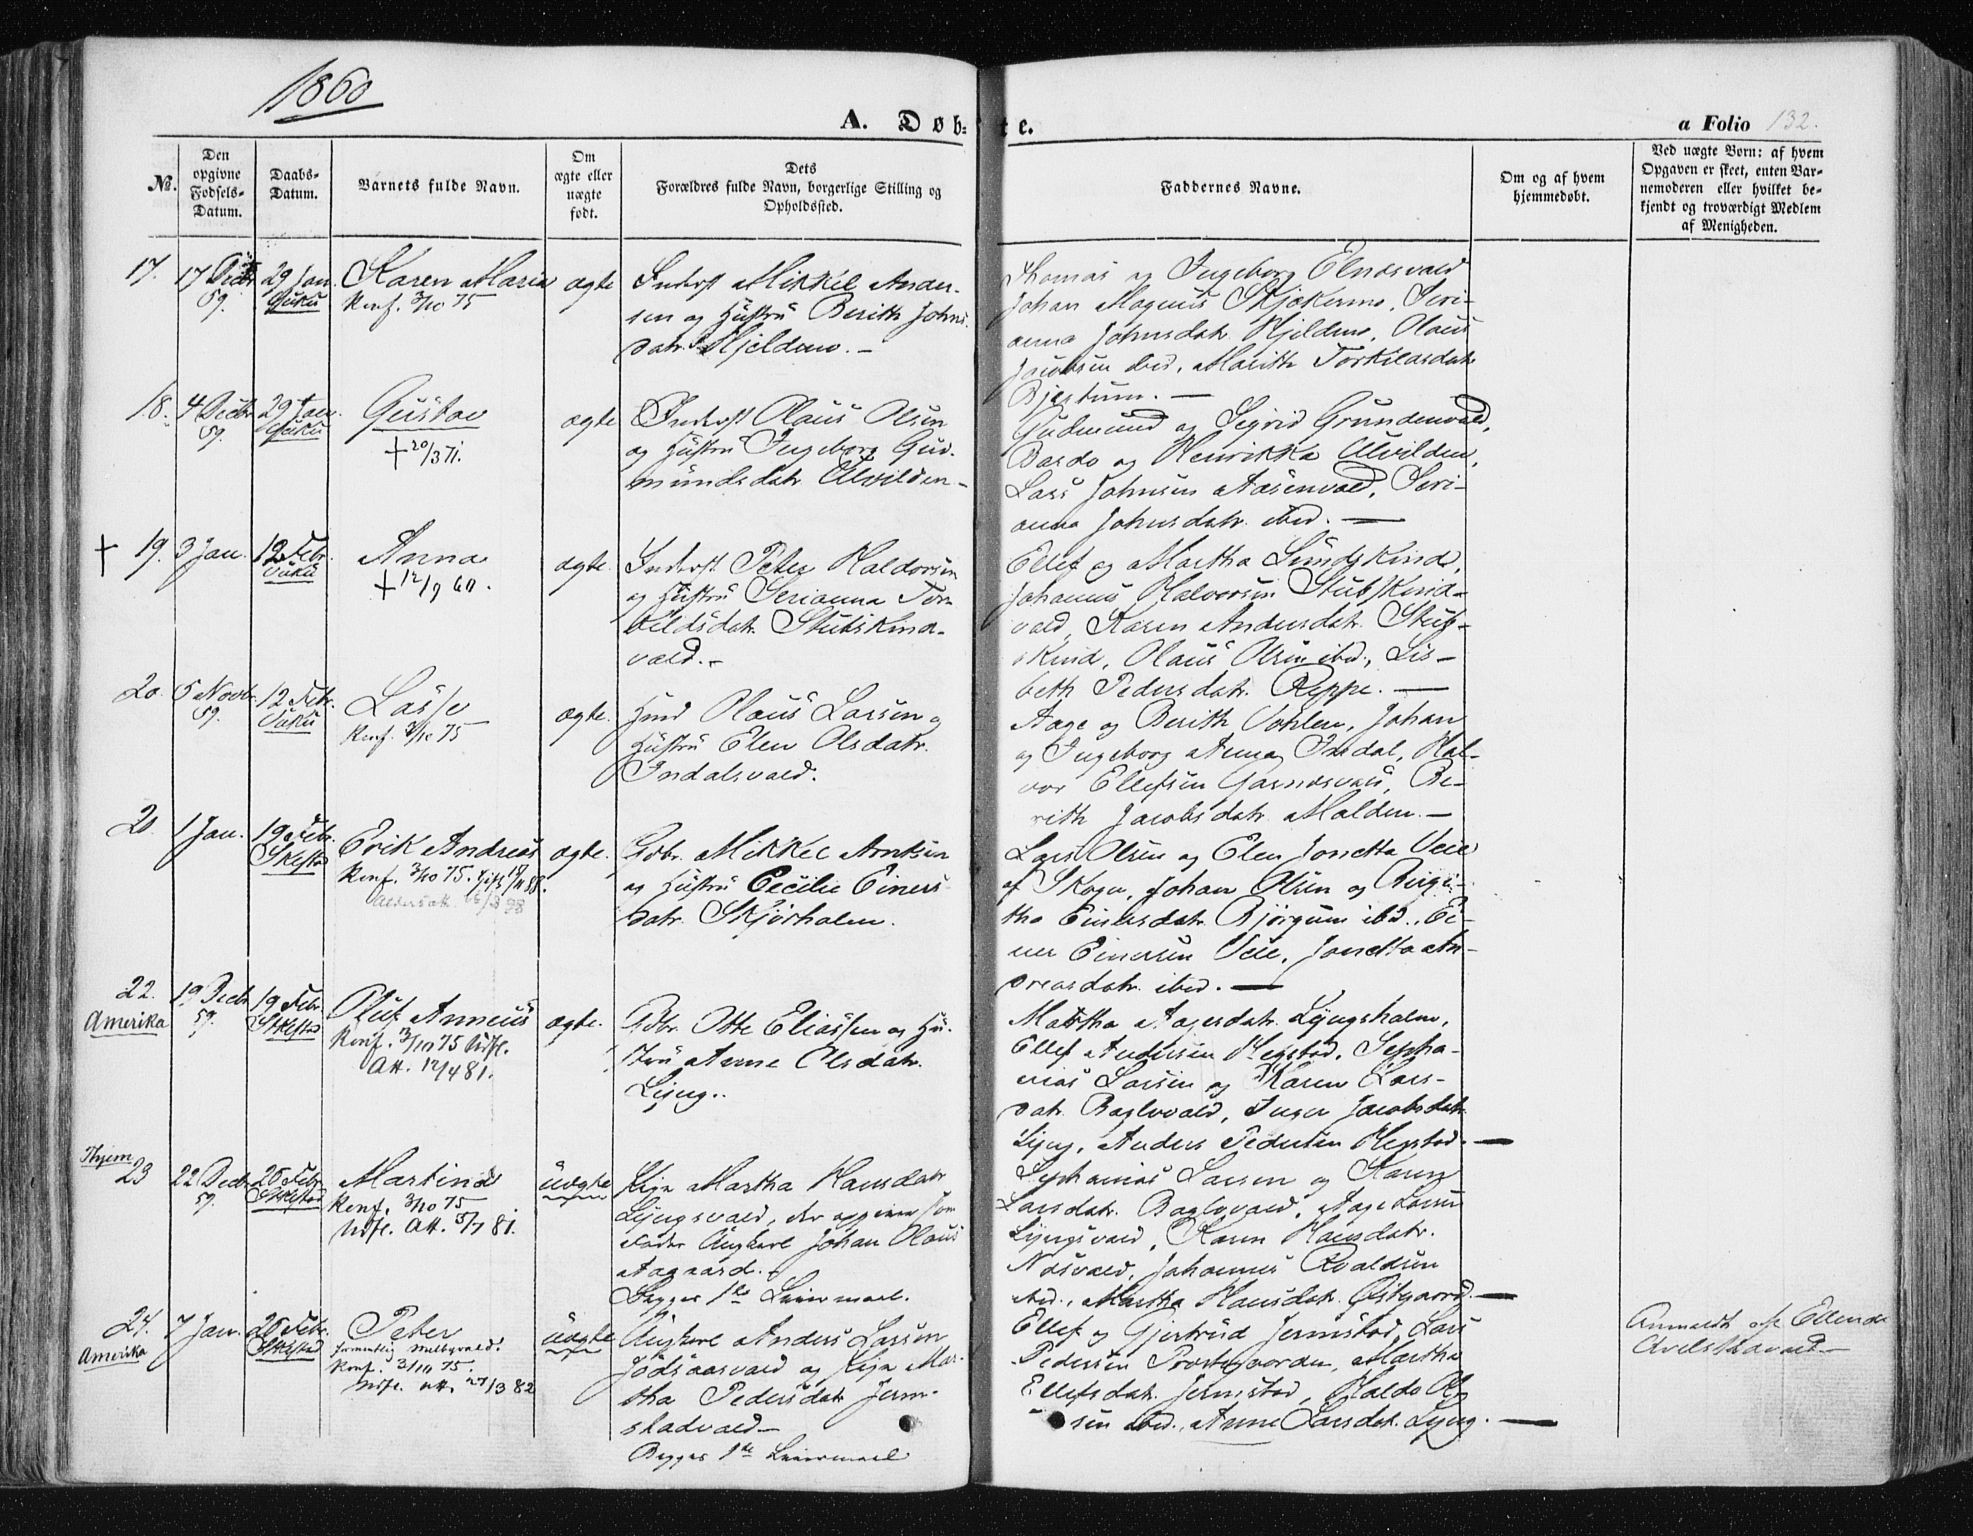 1860
A. Døbte.
a Folio 132.
No.
Den opgivne Fødsels-Datum.
Daabs-Datum.
Barnets fulde Navn.
Om ægte eller uægte født.
Dets Forældres fulde Navn, borgerlige Stilling og Opholdssted.
Faddernes Navne.
Om og af hvem hjemmedøbt.
Ved uægte Børn: af hvem Opgaven er skeet, enten Barnemoderen eller hvilket bekjendt og troværdigt Medlem af Menigheden.
17.
17 Decbr 59.
29 Jan. Vuku
Karen Maria
Konf. 3/10 75
ægte
Inderst Mikkel Ander-
sen og Hustru Berith Johns-
datr. Hjeldmo. –
Thomas og Ingeborg Elnæsvald
Johan Magnus Skjækermo, Seri-
anna Johnsdatr Hjeldmo, Olaus
Jacobsen ibid, Marith Torkildsdatr
Bjartum. —
18.
4 Decbr 59.
29 Jan. Vuku
Gustav
+ 20/3 71.
ægte
Inderst Olaus Olsen
og Hustru Ingeborg Gud-
mundsdatr Ulvilden –
Gudmund og Sigrid Grundenvald,
Bardo og Henrikka Ulvilden,
Lars Johnsen Aasenvald, Seri-
anna Johnsdatr. ibid. —
+ 19.
3 Jan.
12 Febr. Vuku
Anna
+ 12/9 60.
ægte.
Inderst Peter Haldorsen
og Hustru Serianna Tor-
kildsdatr. Stubskind-
vald. –
Ellef og Martha Sundskind,
Johannes Halvorsen Stubskind-
vald, Karen Andersdatr. Stub-
skind, Olaus Olsen ibid., Lis-
beth Pedersdatr. Reppe. —
20.
5 Novbr. 59.
12 Febr. Vuku
Lasse
Konf. 3/10 75
ægte.
Hmd Olaus Larsen og
Hustru Elen Olsdatr.
Indalsvald.
Aage og Berith Vohlen, Johan
og Ingeborg Anna Indal, Hal-
vor Ellefsen Garnæsvald, Be-
rith Jacobsdatr Malden. –
21.
1 Jan.
19 Febr. Stklestad
Erik Andreas
Konf. 3/10 75.
ægte.
Gdbr. Mikkel Arntsen
og Hustru Cecilie Einers-
datr. Skjørholm.
Lars Olsen og Elen Jonetta Veie
af Skogn, Johan Olsen og Birgi-
tha Einersdatr. Bjørgum ibd., Ei-
ner Einersen Veie, Jonetta An-
dreasdatr. ibid. —
22.
Amerika
19 Decbr 59.
19 Febr. Stklestad
Oluf Anneus
Konf. 3/10 75 Udfl.
Att. 12/4 81.
ægte.
Gdbr. Otte Eliassen og Hu-
stru Anne Olsdatr.
Ljyng.
Martha Aagesdatr. Lyngsholm,
Ellef Andersen Hegstad, Sepha-
nias Larsen og Karen Lars-
datr. Baglovald, Inger Jacobsdatr
Ljyng, Anders Pedersen Hegstad. —
Hjem
23
22 Decbr 59.
26 Febr. Stklestad
Martina
Konf. 3/10 75
Udfl. Att. 5/7 81.
uægte
Pige Martha Hansdatr
Ljyngsvald, der opgiver som
Fader Ungkarl Johan Olaus
Aagaard.
Begges 1ste Leiermaal.
Sephanias Larsen og Karen
Larsdatr. Baglovald, Aage Larsen
Ljyngsvald, Karen Hansdatr.
Næsvald, Johannes Roaldsen
ibid., Martha Hansdatr. Østgaard. —
24.
Amerika
7 Jan.
26 Febr. Stklestad
Peter
Konf. 3/10 75.
Udfl. att. 27/3 82
uægte
Ungkarl Anders Larsen
Jødsaasvald og Pige Mar-
tha Pedersdatr Jerm-
stadvald –
Begges 1ste Leiermaal
Ellef og Gjertrud Jermstad, Lars
Pedersen Præstegaarden, Martha
Ellefsdatr. Jermstad, Haldo Ol-
sen ibid., Anne Larsdatr. Ljyng. —
Anmeldt af Ellende